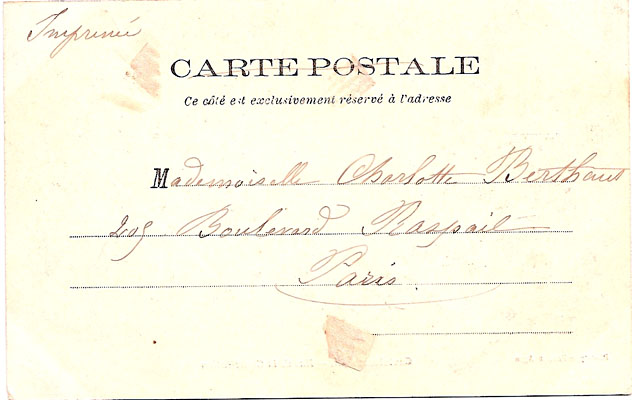 Imprimé
CARTE POSTALE
Ce côté est exclusivement réservé à l'adresse
Mademoiselle Charlotte Berthaut
205 Boulevard Raspail
Paris